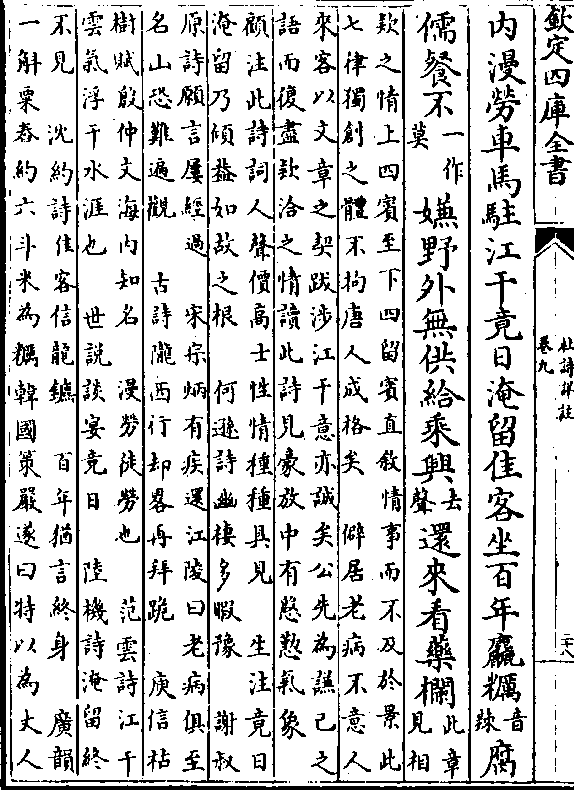 欽定四庫全書
杜詩詳註
卷九
二十八
内漫勞車馬駐江干竟日淹留佳客坐百年麤糲音辣腐
儒餐不一作莫嫌野外無供給乘興去聲還來看藥欄此章見相
欵之情上四賓至下四留賓直敘情事而不及於景此
七律獨創之體不拘唐人成格矣　僻居老病不意人
來客以文章之契跋涉江干意亦誠矣公先為謙己之
語而復盡欵洽之情讀此詩見豪放中有慇懃氣象
顧注此詩詞人聲價高士性情種種具見　生注竟日
淹留乃傾蓋如故之根　何遜詩幽棲多暇豫　謝叔
原詩願言屢經過　宋宗炳有疾還江陵曰老病俱至
名山恐難遍觀　古詩隴西行却畧再拜跪　庾信枯
樹賦殷仲文海内知名　漫勞徒勞也　范雲詩江干
雲氣浮干水涯也　世說談宴竟日　陸機詩淹留終
不見　沈約詩佳客信龍鑣　百年猶言終身　廣韻
一斛粟舂約六斗米為糲韓國策嚴遂曰特以為丈人